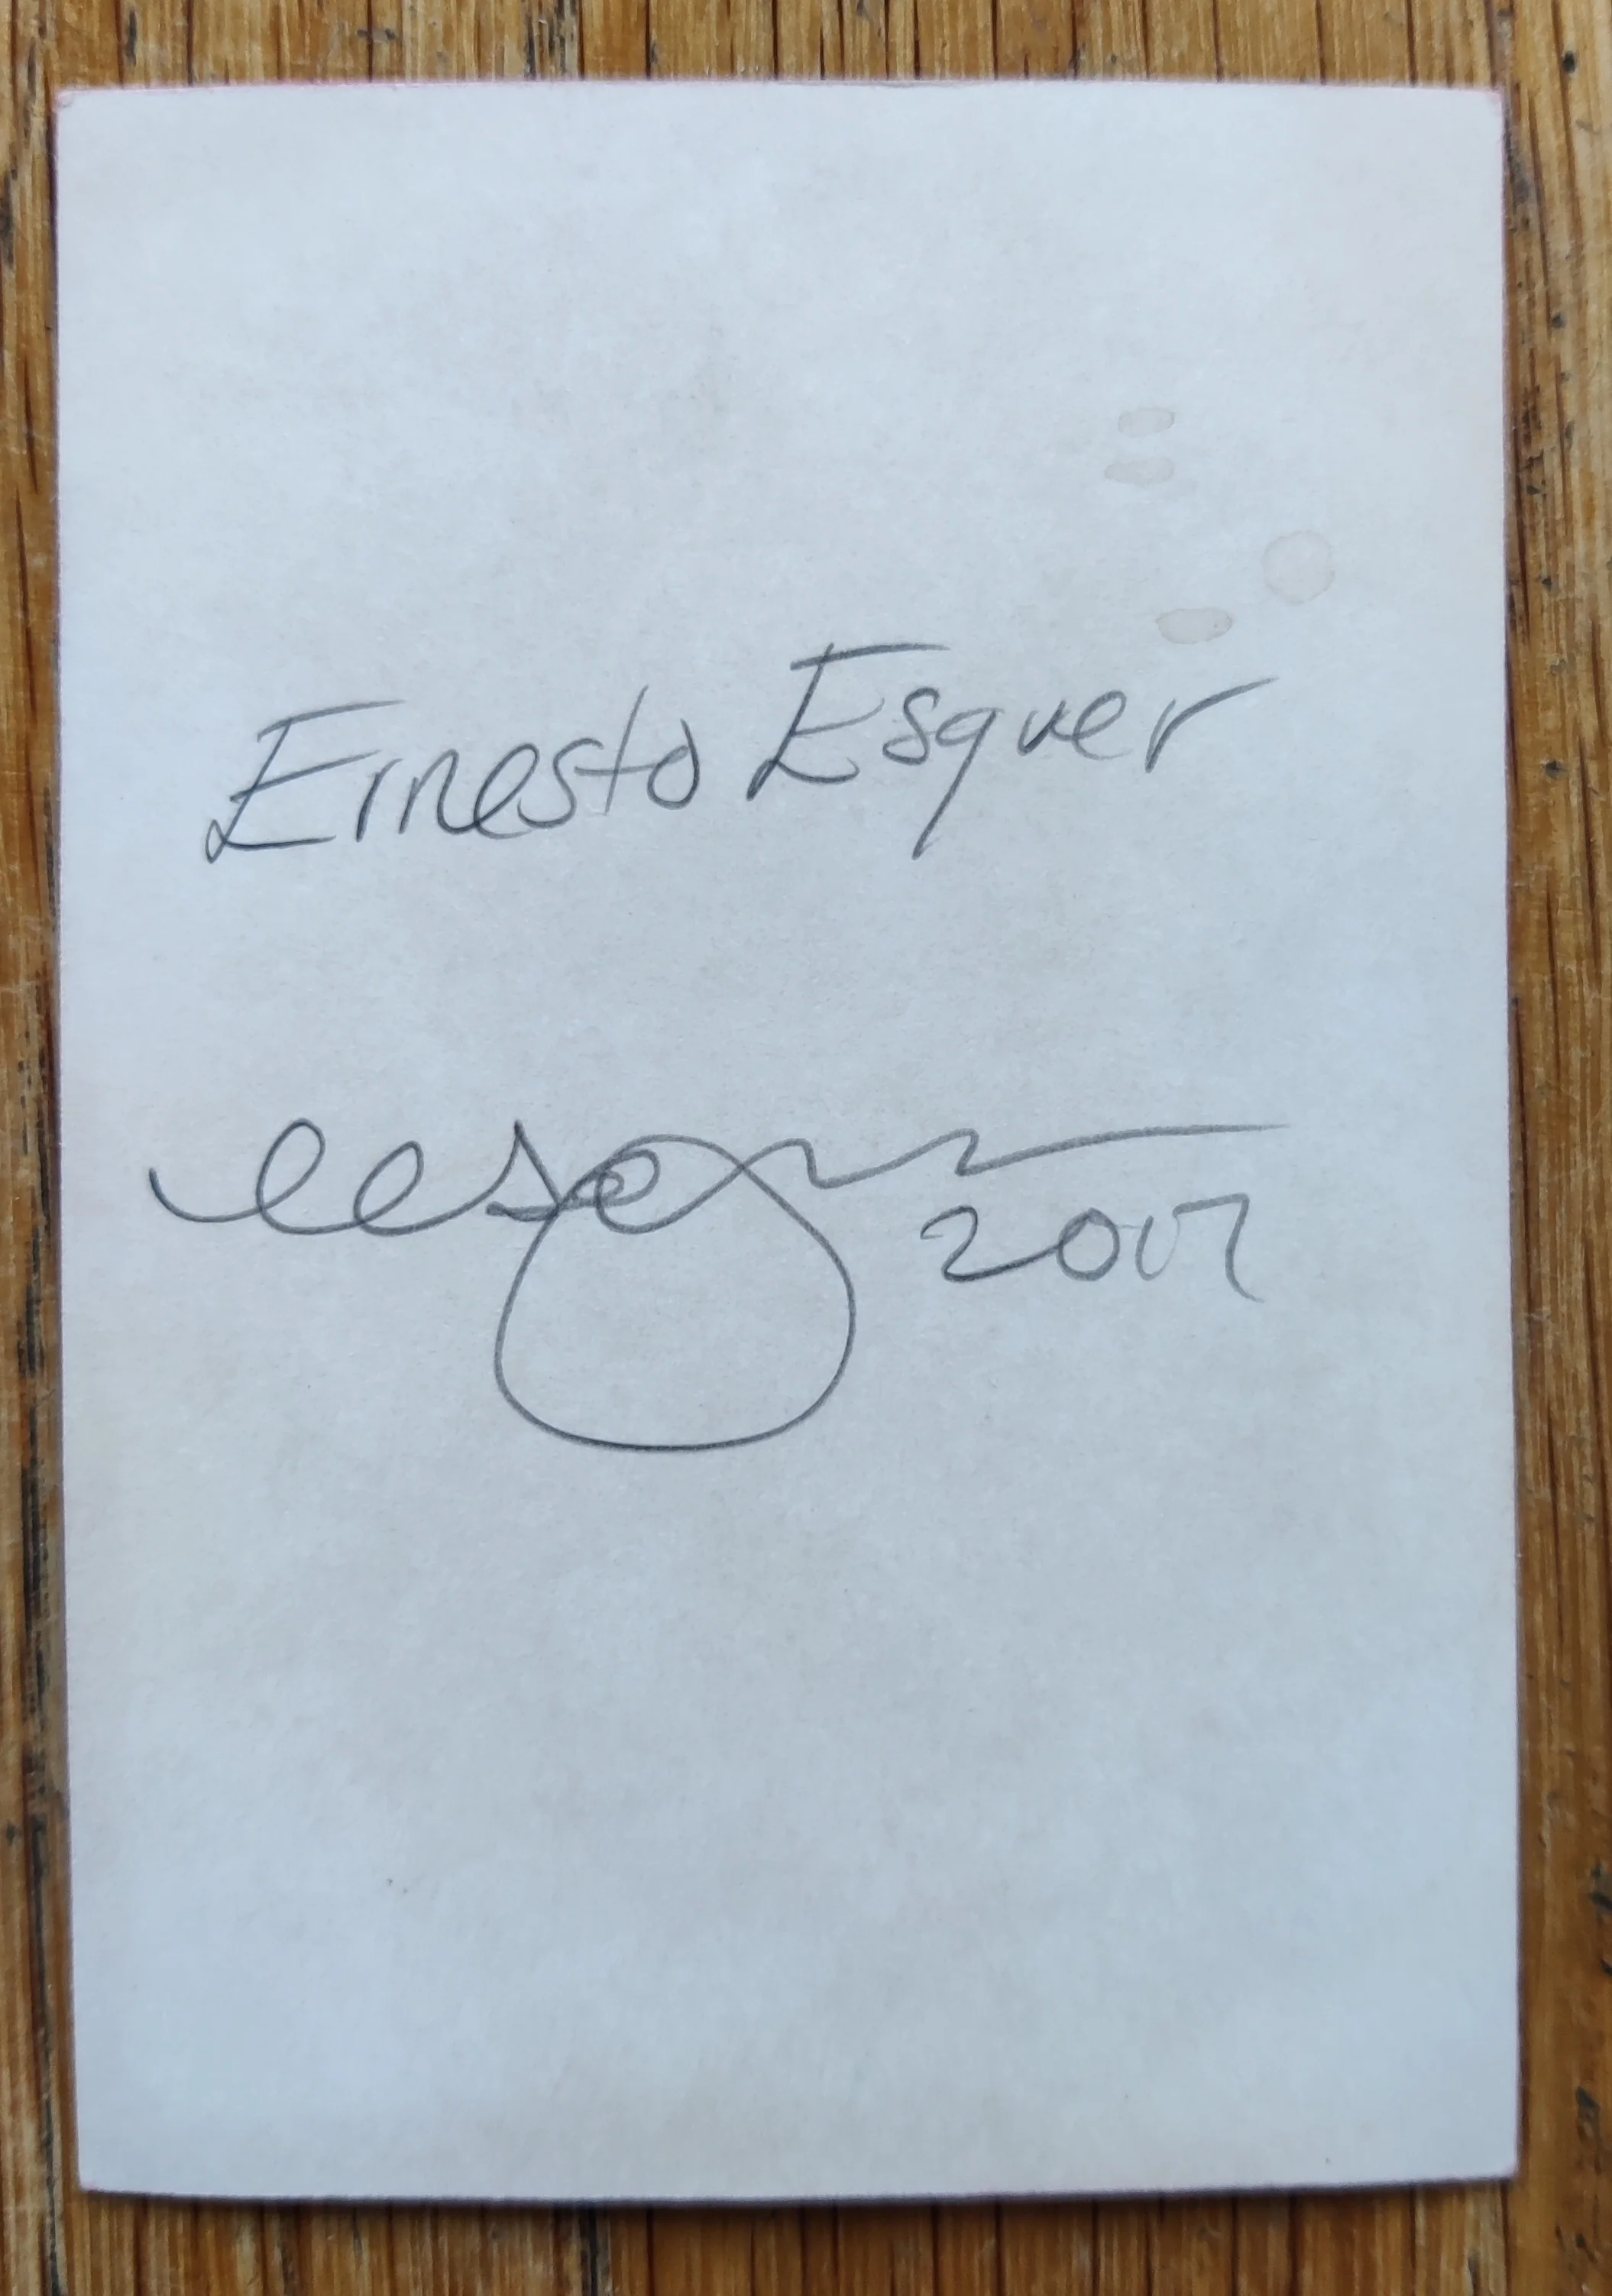 Ernesto Esquer
2017